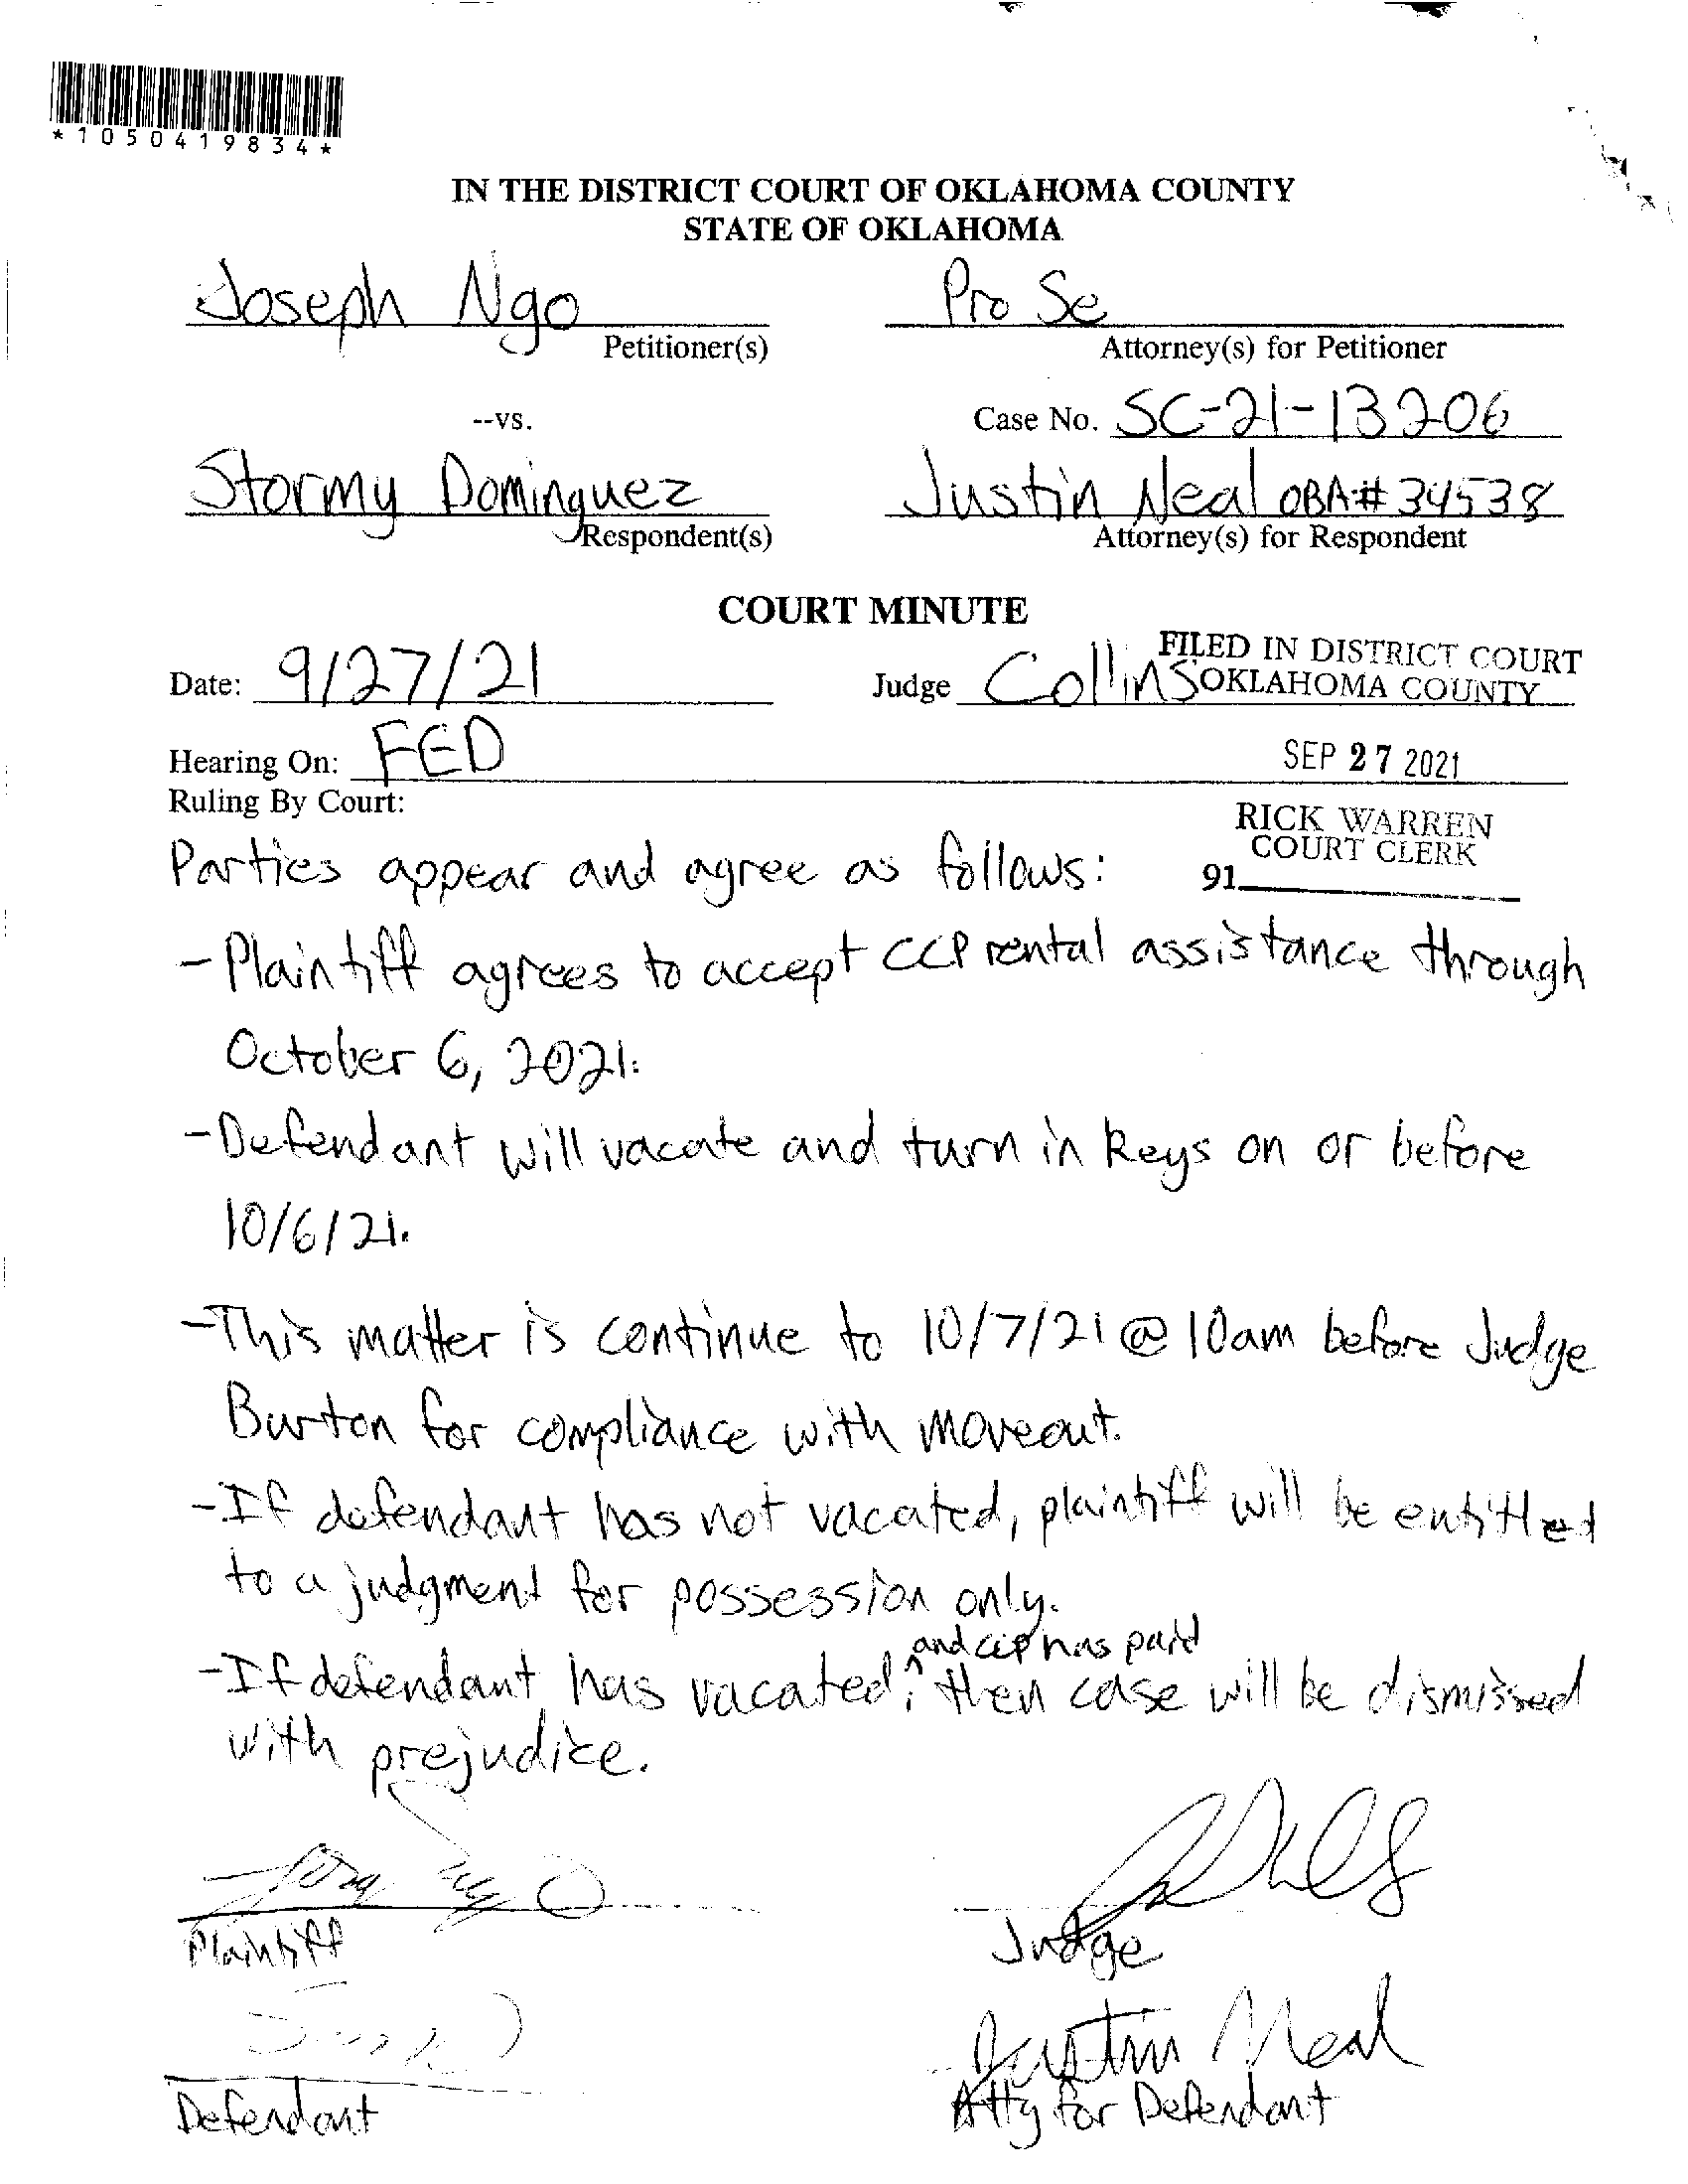 *1050419834*
IN THE DISTRICT COURT OF OKLAHOMA COUNTY
STATE OF OKLAHOMA
Joseph Ngo
Petitioner(s)
Pro Se
Attorney(s) for Petitioner
--vs.
Case No. SC-21-13206
Stormy Dominguez
Respondent(s)
Justin Neal OBA# 34538
Attorney(s) for Respondent
COURT MINUTE
Date: 9/27/21
Judge Collins
FILED IN DISTRICT COURT
OKLAHOMA COUNTY
Hearing On: FED
SEP 27 2021
Ruling By Court:
RICK WARREN
COURT CLERK
91
Parties appear and agree as follows:
- Plaintiff agrees to accept CCP rental assistance through
October 6, 2021.
- Defendant will vacate and turn in keys on or before
10/6/21.
- This matter is continue to 10/7/21 @ 10am before Judge
Burton for compliance with moveout.
- If defendant has not vacated, plaintiff will be entitled
to a judgment for possession only.
and ccp has paid
- If defendant has vacated, ^ then case will be dismissed
with prejudice.
Plaintiff
Judge
Justin Neal
Defendant
Atty for Defendant